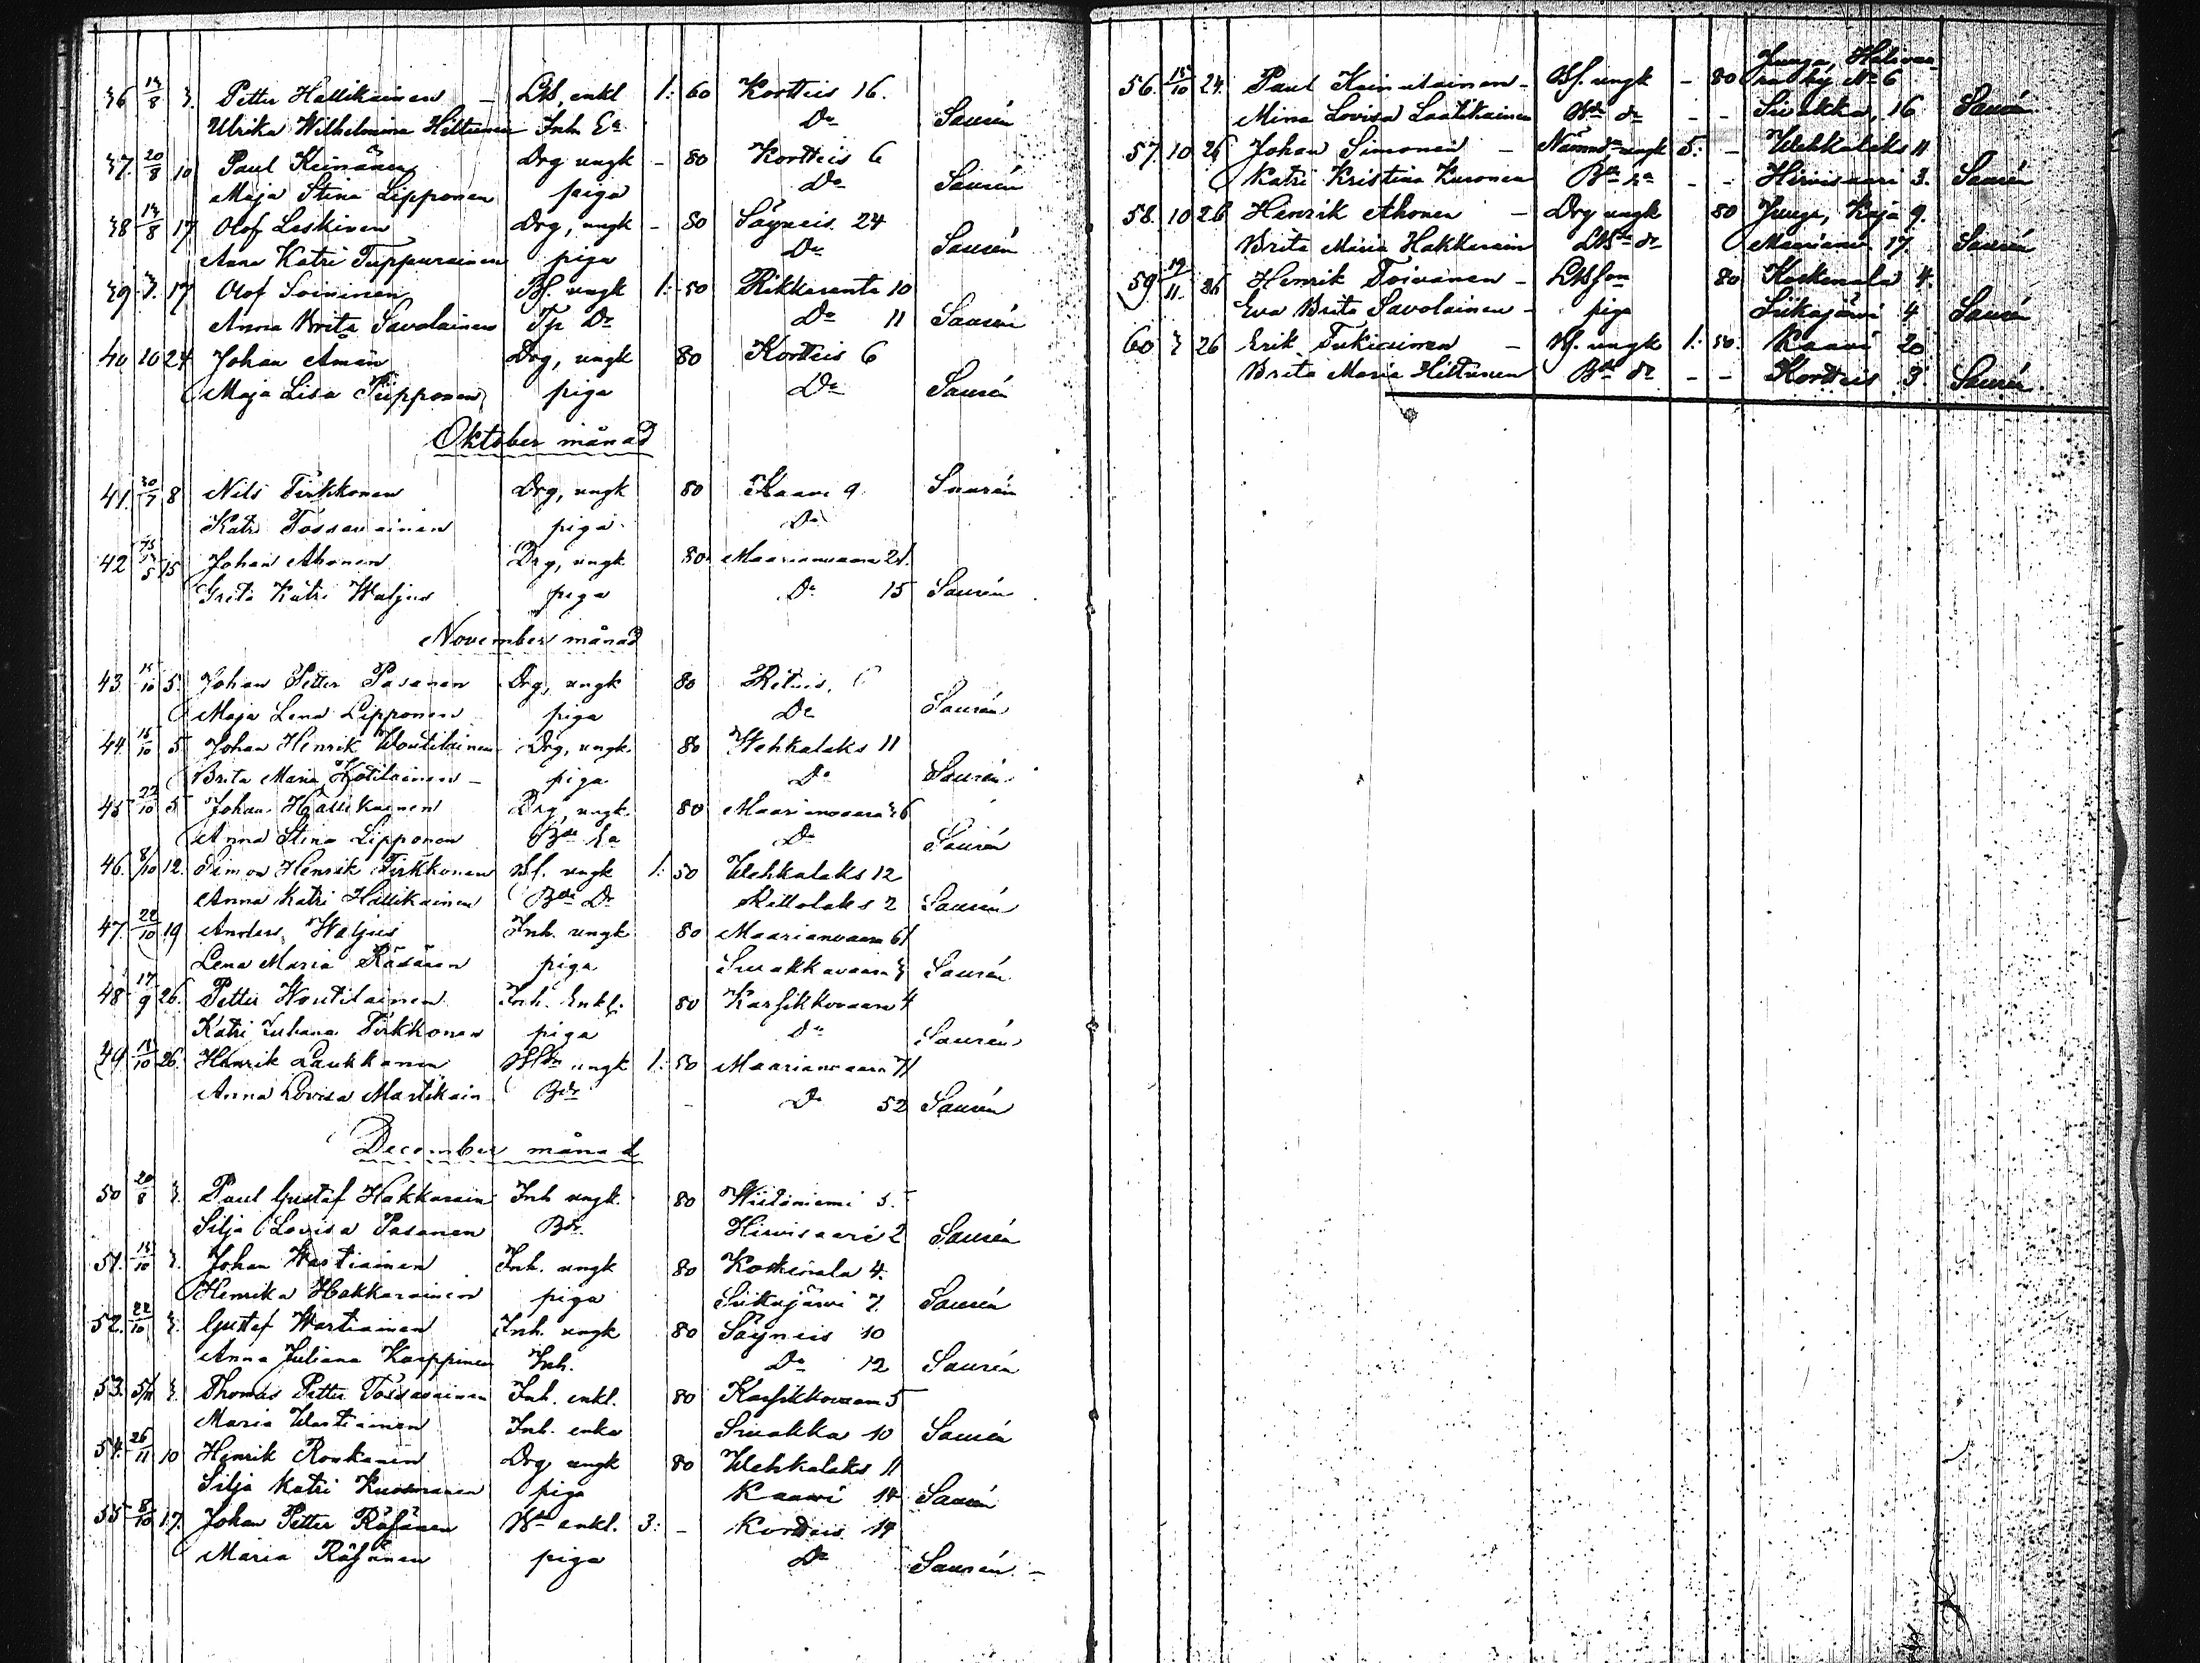 36 13/8 3. Petter Hallikainen – Lbs, enkl 1: 60 Kortteis 16.
Ulrika Wilhelmina Hiltunen Inh. Ea Do Saurén
37. 20/8 10 Paul Keinänen Drg ungk – 80 Kortteis 6
Maja Stina Lipponen piga Do Saurén
38 13/8 17 Olof Leskinen Drg, ungk – 80 Säyneis 24
Anna Katri Tuppurainen piga Do Saurén
39 3. 17 Olof Soininen Bf. ungk 1: 50 Rikkaranta 10
Anna Brita Savolainen Tp Dr Do 11 Saurén
40 20 24 Johan Aman Drg, ungk 80 Kortteis 6
Maja Lisa Piipponen piga Do Saurén
Oktober månad
41. 30/7 8 Nils Tirkkonen Drg, ungk 80 Kaavi 9 Saurén
Katri Tossavainen piga Do
42 15 Johan Ahonen Drg, ungk 80. Maarianvaara 21.
Greta Katri Waljus piga Do 15 Saurén
November månad
43. 15/10 5. Johan Petter Pasanen Drg, ungk 80 Retuis,
Maja Lena Lipponen piga Do Saurén
44. 15/10 5 Johan Henrik Woutilainen Drg, ungk. 80 Wehkalaks 11
Brita Maria Kotilainen – piga Do Saurén
45 22/10 5 Johan Hallikainen Drg, ungk. 80 Maarianvaara 36
Anna Stina Lipponen Bde Ea Do Saurén
46. 8/10 12. Simon Henrik Tirkkonen Bf. ungk 1: 50 Wehkalaks 12
Anna Katri Hallikainen Bde Dr Rettulaks 2 Saurén
47. 22/10 19 Anders Waljus Inh. ungk 80 Maarianvaara 61
Lena Maria Räsänen piga Sivakkavaara 3 Saurén
48 17/9 26. Petter Woutilainen Inh. Enkl. 80 Karsikkovaara 4
Katri Juliana Tirkkonen piga Do Saurén
49 15/10 26. Henrik Laukkanen Bson ungk 1: 50 Maarianvaara 71
Anna Lovisa Martikain Bdr – Do 52 Saurén
December månad
50 20/8 3. Paul Gustaf Hakkarain Inh ungk. 80 Wiitaniemi 5.
Silja Lovisa Pasanen Bdr. Hirvisaari 2 Saurén
51. 15/10 3. Johan Wartiainen Inh. ungk 80 Koskenala 4.
Henrika Hakkarainen piga Siikajärvi 7. Saurén
52. 22/10 3. Gustaf Wartiainen Inh. ungk 80 Säyneis 10
Anna Juliana Karppinen Inh. Do 12 Saurén
53. 3. Thomas Petter Tossavainen Inh. enkl. 80 Karsikkovaara 5
Maria Wartiainen Inh. enka Sivakka 10 Saurén
54. 26/11 10 Henrik Ronkanen Drg ungk 80 Wehkalaks 11
Silja Katri Kuosmanen piga Kaavi 14 Saurén
55 8/10 17. Johan Petter Räsänen Bde enkl. 3: – Kortteis 14
Maria Räsänen piga Do Saurén. –
56. 15/10 24. Paul Kainulainen – Bf. ungk – 80 Juuga, Halivaa
ra by No 6
Mina Lovisa Laatikainen Bde dr – – Sivakka, 16 Saurén
57. 10 26 Johan Simonen – Nämnd. ungk 5: – Wehkalaks 11
Katri Kristina Kuronen Bde Ea – – Hirvisaari 3. Saurén
58. 10 26 Henrik Ahonen – Drg ungk 80 Juuga, Kaja 9.
Brita Maria Hakkarain Lbs dr Maarian 17. Saurén
59. 19/11. 26 Henrik Toivanen – Lbs son 80 Koskenala 4.
Eva Brita Savolainen – piga Siikajärvi 4 Saurén
60 3 26 Erik Tukiainen – Bf. ungk 1: 50. Kaavi 20
Brita Maria Hiltunen Bde dr – – Kortteis 3 Saurén.